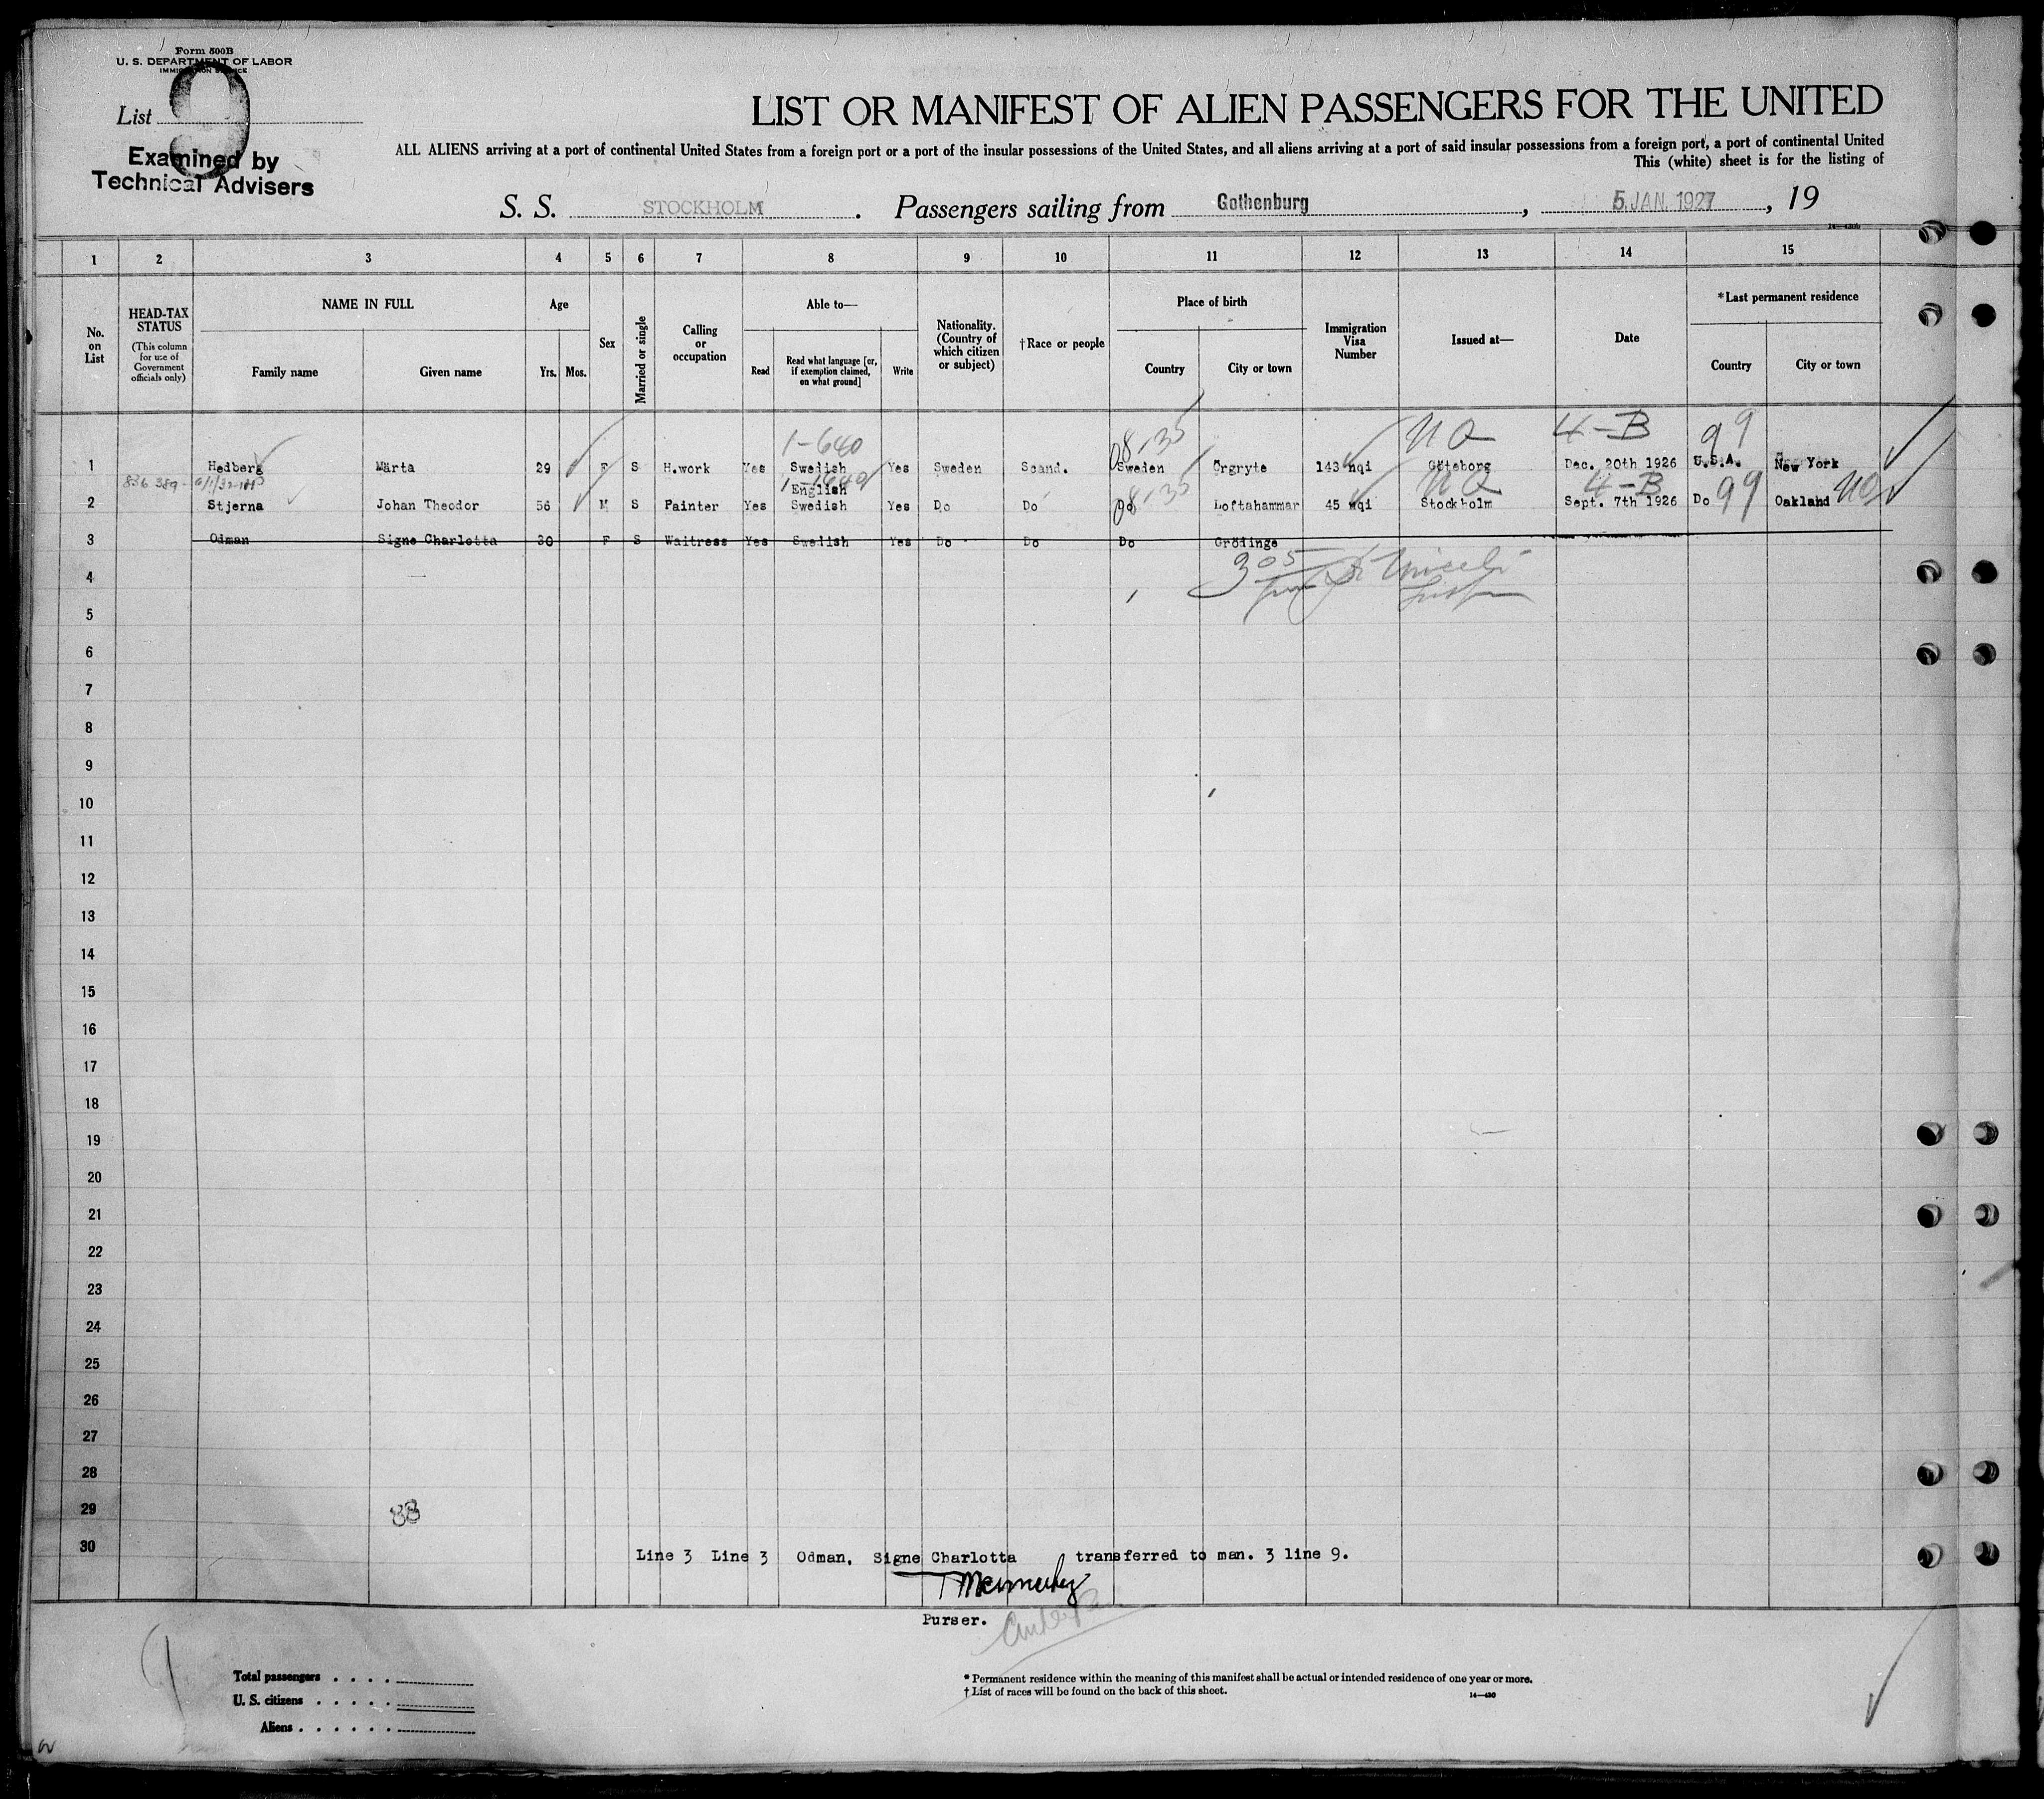 Form 500B
U. S. DEPARTMENT OF LABOR
IMMIGRATION SERVICE
List 9
Examined by
Technical Advisers
LIST OR MANIFEST OF ALIEN PASSENGERS FOR THE UNITED
ALL ALIENS arriving at a port of continental United States from a foreign port or a port of the insular possessions of the United States, and all aliens arriving at a port of said insular possessions from a foreign port, a port of continental United
This (white) sheet is for the listing of
S. S. STOCKHOLM . Passengers sailing from Gothenburg , 5. JAN. 1927 , 19
1 2 3 4 5 6 7 8 9 10 11 12 13 14 15
No. on List
HEAD-TAX STATUS (This column for use of Government officials only)
NAME IN FULL
Family name Given name
Age
Yrs. Mos.
Sex
Married or single
Calling or occupation
Able to—
Read Read what language [or, if exemption claimed, on what ground] Write
Nationality. (Country of which citizen or subject)
†Race or people
Place of birth
Country City or town
Immigration Visa Number
Issued at—
Date
*Last permanent residence
Country City or town
1-640 08,35 NQ 4-B 99
1 Hedberg Märta 29 F S H.work Yes Swedish Yes Sweden Scand. Sweden Örgryte 143 nqi Göteborg Dec. 20th 1926 U.S.A. New York
836 389 English 08,35 NQ 4-B 99
2 Stjerna Johan Theodor 56 M S Painter Yes Swedish Yes Do Do Do Loftahammar 45 nqi Stockholm Sept. 7th 1926 Do Oakland
3 Odman Signe Charlotta 30 F S Waitress Yes Swedish Yes Do Do Do Grödinge
305
4
5
6
7
8
9
10
11
12
13
14
15
16
17
18
19
20
21
22
23
24
25
26
27
28
29 88
30
Line 3 Line 3 Odman, Signe Charlotta transferred to man. 3 line 9.
Purser.
Total passengers
U. S. citizens
Aliens
* Permanent residence within the meaning of this manifest shall be actual or intended residence of one year or more.
† List of races will be found on the back of this sheet.
14—430